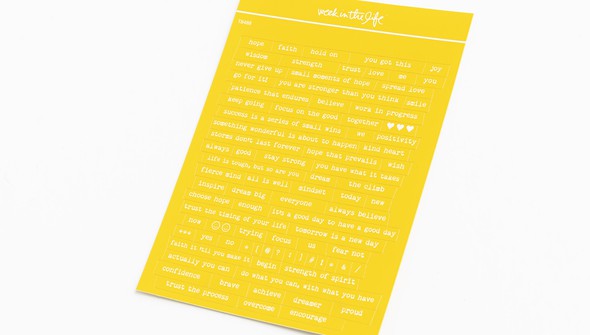 week in the life
hope faith hold on you got this joy
window strength trust love me you
never give up small moments of hope spread love
go for it! you are stronger than you think smile
patience that endures believe work in progress
keep going focus on the good together ♥♥♥
success is a series of small wins positivity
something wonderful is about to happen kind heart
storms don't last forever hope that prevails wish
always good stay strong you have what it takes
life is tough, but so are you dream the climb
fierce mind all is well mindset today new
inspire dream big everyone always believe
choose hope enough it's a good day to have a good day
trust the timing of your life tomorrow is a new day
now trying focus us fear not
*** yes no
faith it 'til you make it begin strength of spirit
actually you can do what you can, with what you have
confidence brave achieve dreamer proud
trust the process overcome encourage